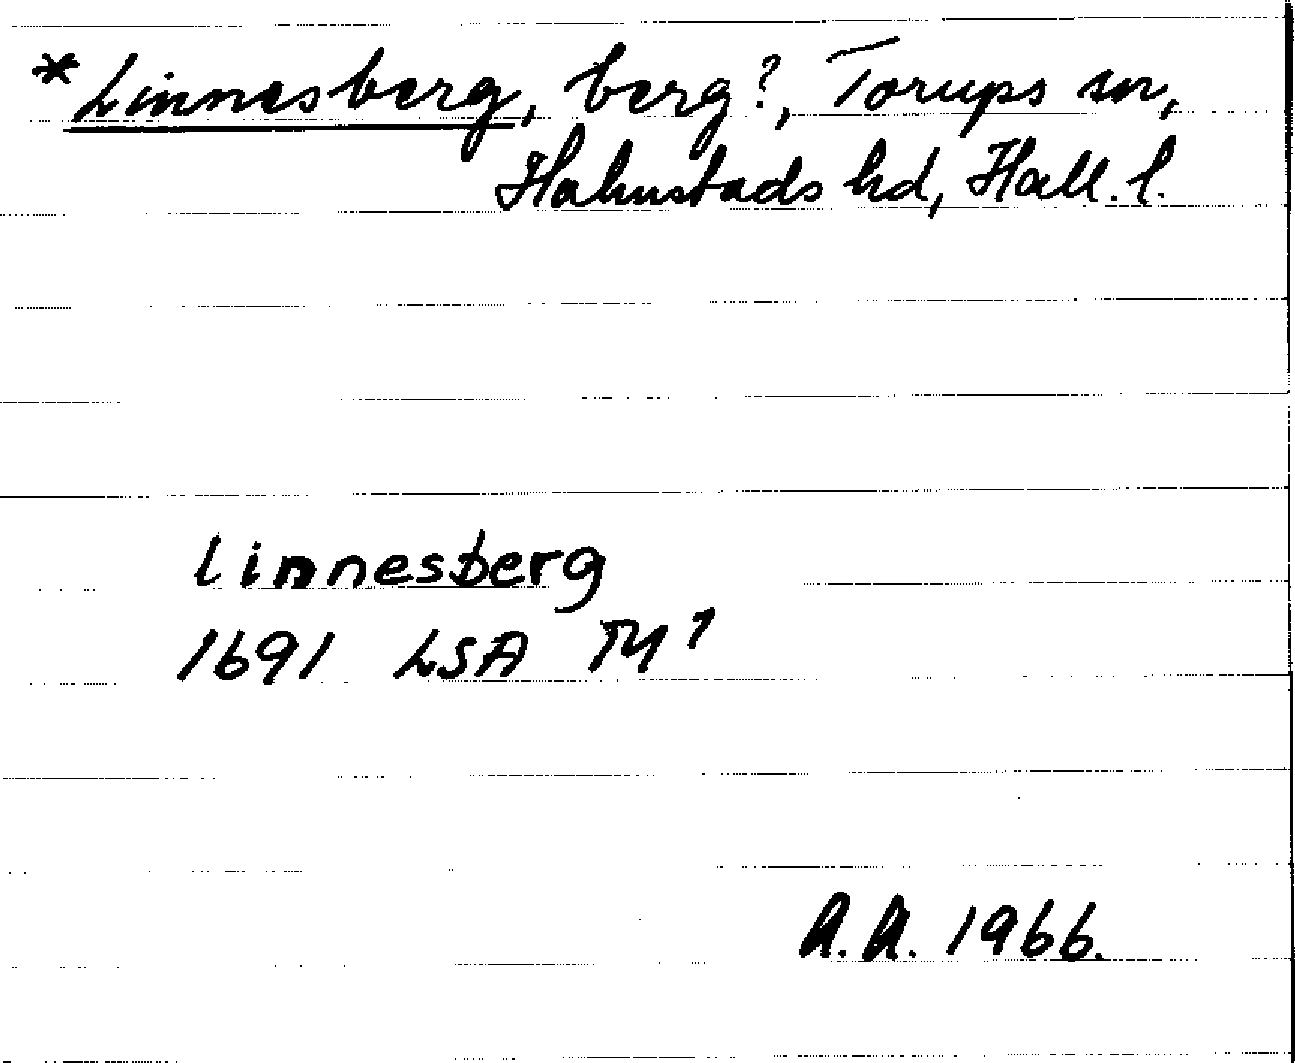 *Linnesberg, berg?, Torups sn,
Halmstads hd, Hall. l.
linnesberg
1691 LSA
A.A. 1966.